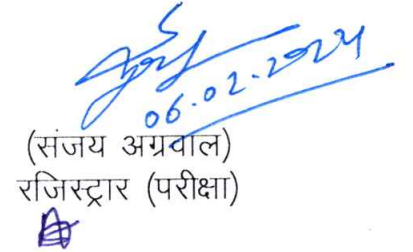 06.02.2024
(संजय अग्रवाल)
रजिस्ट्रार (परीक्षा)